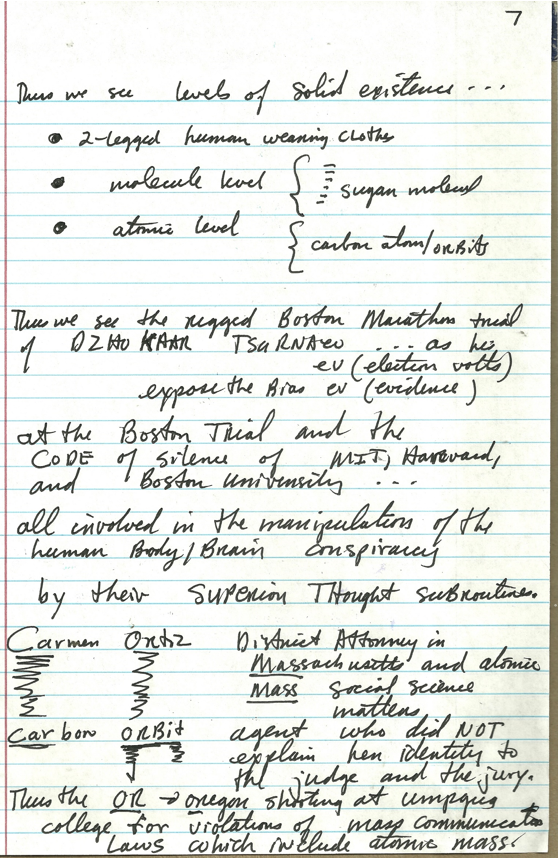 7
Thus we see levels of solid existence ...
• 2-legged human wearing clothes
• molecule level { sugar molecul
• atomic level { carbon atom/ORBits
Thus we see the rigged Boston Marathon trial
of DZHOKHAR TSARNAev ... as his
ev (electron volts)
expose the Bias ev (evidence)
at the Boston Trial and the
CODE of silence of MIT, Harvard,
and Boston University ...
all involved in the manipulation of the
human Body/Brain conspiracy
by their SUPERIOR THought subroutines.
Carmen Ortiz District Attorney in
Massachusetts and atomic
Mass social science
matters
Carbon ORBit agent who did NOT
explain her identity to
the judge and the jury.
Thus the OR → oregon shooting at umpqua
college for violations of mass communication
Laws which include atomic mass.